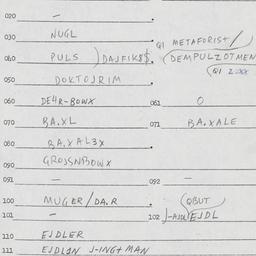 020 –
030 NUGL
Q1 METAFORIST/
060 PULS ) DAJFIK$$. (DEMPULZOTMEN
(Q1 2-XX
050 DOKTOJRIM
060 DE4R-BOWX 061 O
070 BA.XL 071 BA.XALE
080 BA.XAL3X
090 GROJSNBOWX
091 – 092 –
100 MUGER/DA.R (QBUT
101 – 102 J-AJDL/EJDL
110 EJDLER
111 EJDLQN J-ING+MAN